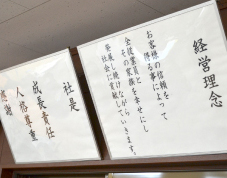 経営理念
お客様の信頼をもって
得る事によって
全従業員と
その家族を幸せにし
発展し続けながら
社会に貢献していきます。
社是
成長責任
人格尊重
感謝